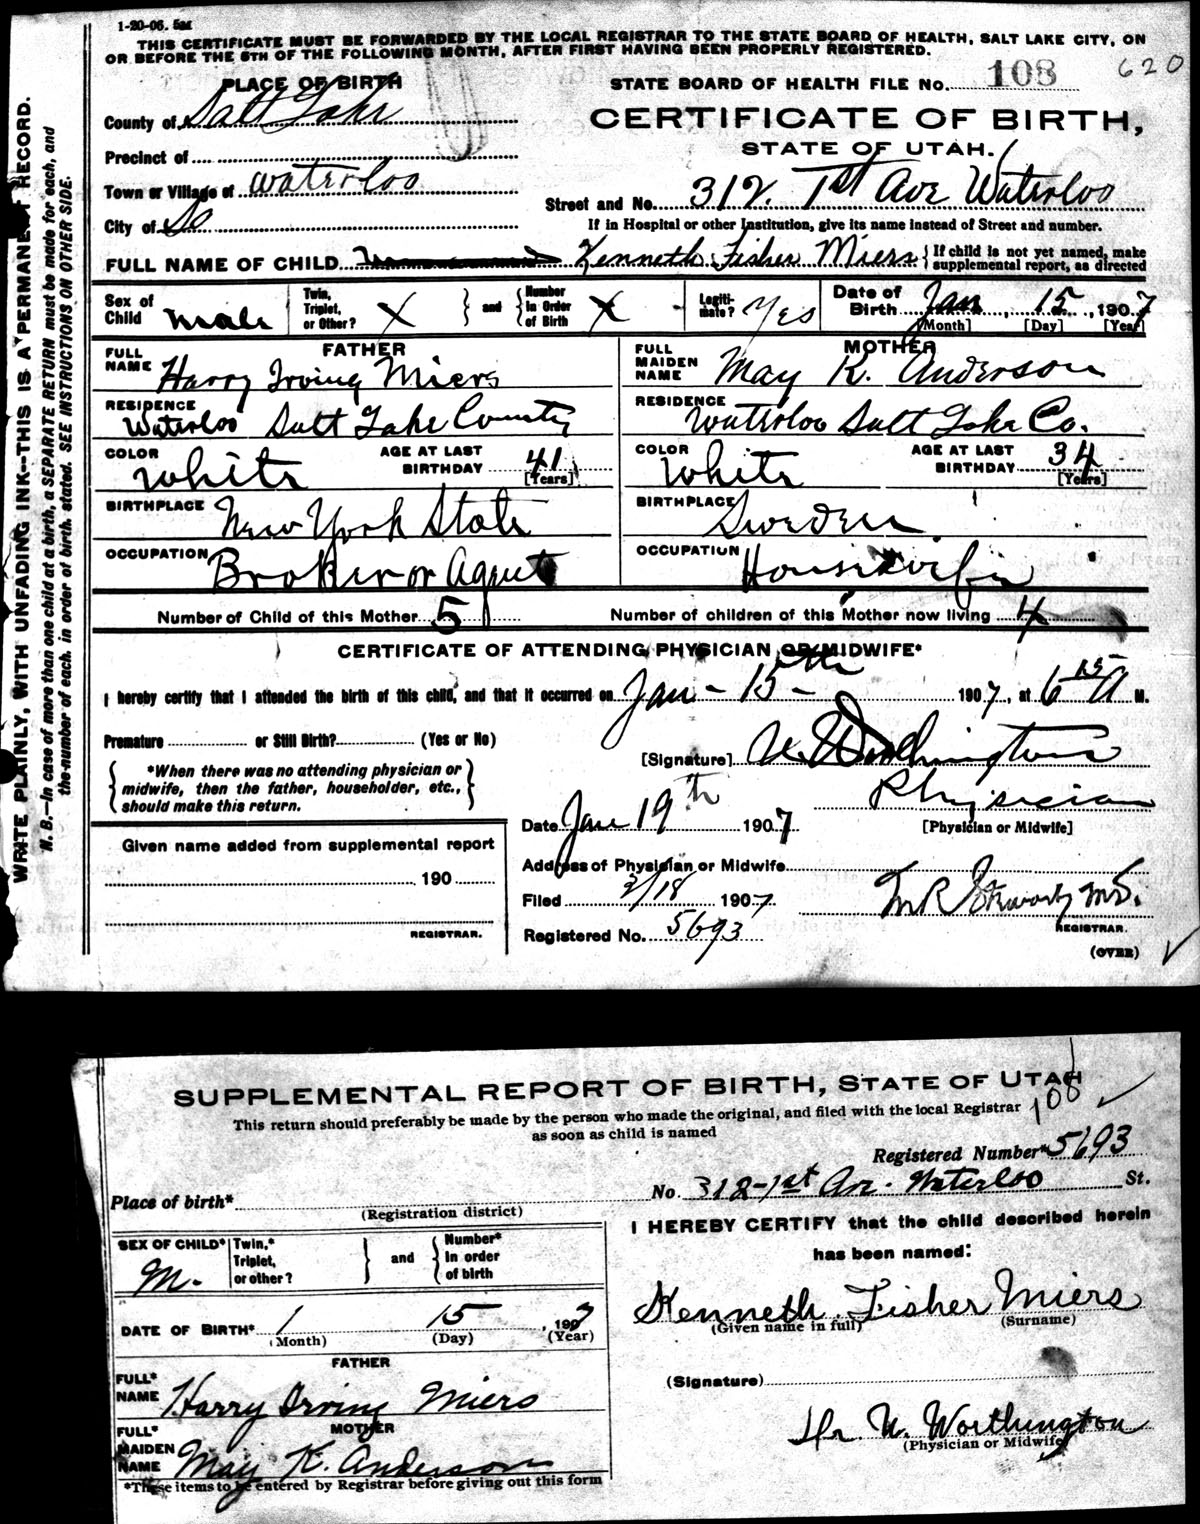 1-20-06. 5M
THIS CERTIFICATE MUST BE FORWARDED BY THE LOCAL REGISTRAR TO THE STATE BOARD OF HEALTH, SALT LAKE CITY, ON
OR BEFORE THE 5TH OF THE FOLLOWING MONTH, AFTER FIRST HAVING BEEN PROPERLY REGISTERED.
620
PLACE OF BIRTH
STATE BOARD OF HEALTH FILE No. 108
County of Salt Lake
CERTIFICATE OF BIRTH,
STATE OF UTAH.
Precinct of
Town or Village of Waterloo
Street and No. 312. 1st Ave Waterloo
City of So
If in Hospital or other Institution, give its name instead of Street and number.
FULL NAME OF CHILD Kenneth Fisher Miers { If child is not yet named, make
supplemental report, as directed
Sex of Child male
Twin, Triplet, or Other? X } and { Number in Order of Birth X
Legitimate? Yes
Date of Birth Jan, 15, 1907
[Month] [Day] [Year]
FATHER
FULL NAME Harry Irving Miers
RESIDENCE Waterloo Salt Lake County
COLOR White
AGE AT LAST BIRTHDAY 41 [Years]
BIRTHPLACE New York State
OCCUPATION Broker or Agent
MOTHER
FULL MAIDEN NAME May K. Anderson
RESIDENCE Waterloo Salt Lake Co.
COLOR White
AGE AT LAST BIRTHDAY 34 [Years]
BIRTHPLACE Sweden
OCCUPATION Housewife
Number of Child of this Mother 5
Number of children of this Mother now living 4
CERTIFICATE OF ATTENDING PHYSICIAN OR MIDWIFE*
I hereby certify that I attended the birth of this child, and that it occurred on Jan - 15th - 1907, at 6 15 A M.
Premature or Still Birth? (Yes or No)
[Signature] U Worthington
{ *When there was no attending physician or
midwife, then the father, householder, etc.,
should make this return. }
Physician
[Physician or Midwife]
Date Jan 19th 1907
Given name added from supplemental report
190
REGISTRAR.
Address of Physician or Midwife
Filed 2/18 1907
M.D.
REGISTRAR.
Registered No. 5693
(OVER)
WRITE PLAINLY, WITH UNFADING INK—THIS IS A PERMANENT RECORD.
N. B.—In case of more than one child at a birth, a SEPARATE RETURN must be made for each, and
the number of each, in order of birth, stated. SEE INSTRUCTIONS ON OTHER SIDE.
SUPPLEMENTAL REPORT OF BIRTH, STATE OF UTAH
This return should preferably be made by the person who made the original, and filed with the local Registrar
as soon as child is named
108
Registered Number* 5693
Place of birth*
(Registration district)
No. 312-1st Av. Waterloo St.
SEX OF CHILD* M.
Twin,* Triplet, or other? } and { Number* In order of birth
I HEREBY CERTIFY that the child described herein
has been named:
Kenneth Fisher Miers
(Given name in full) (Surname)
DATE OF BIRTH* 1 15, 1907
(Month) (Day) (Year)
FATHER
FULL* NAME Harry Irving Miers
(Signature)
MOTHER
FULL* MAIDEN NAME May K. Anderson
Dr. U. Worthington
(Physician or Midwife)
*These items to be entered by Registrar before giving out this form